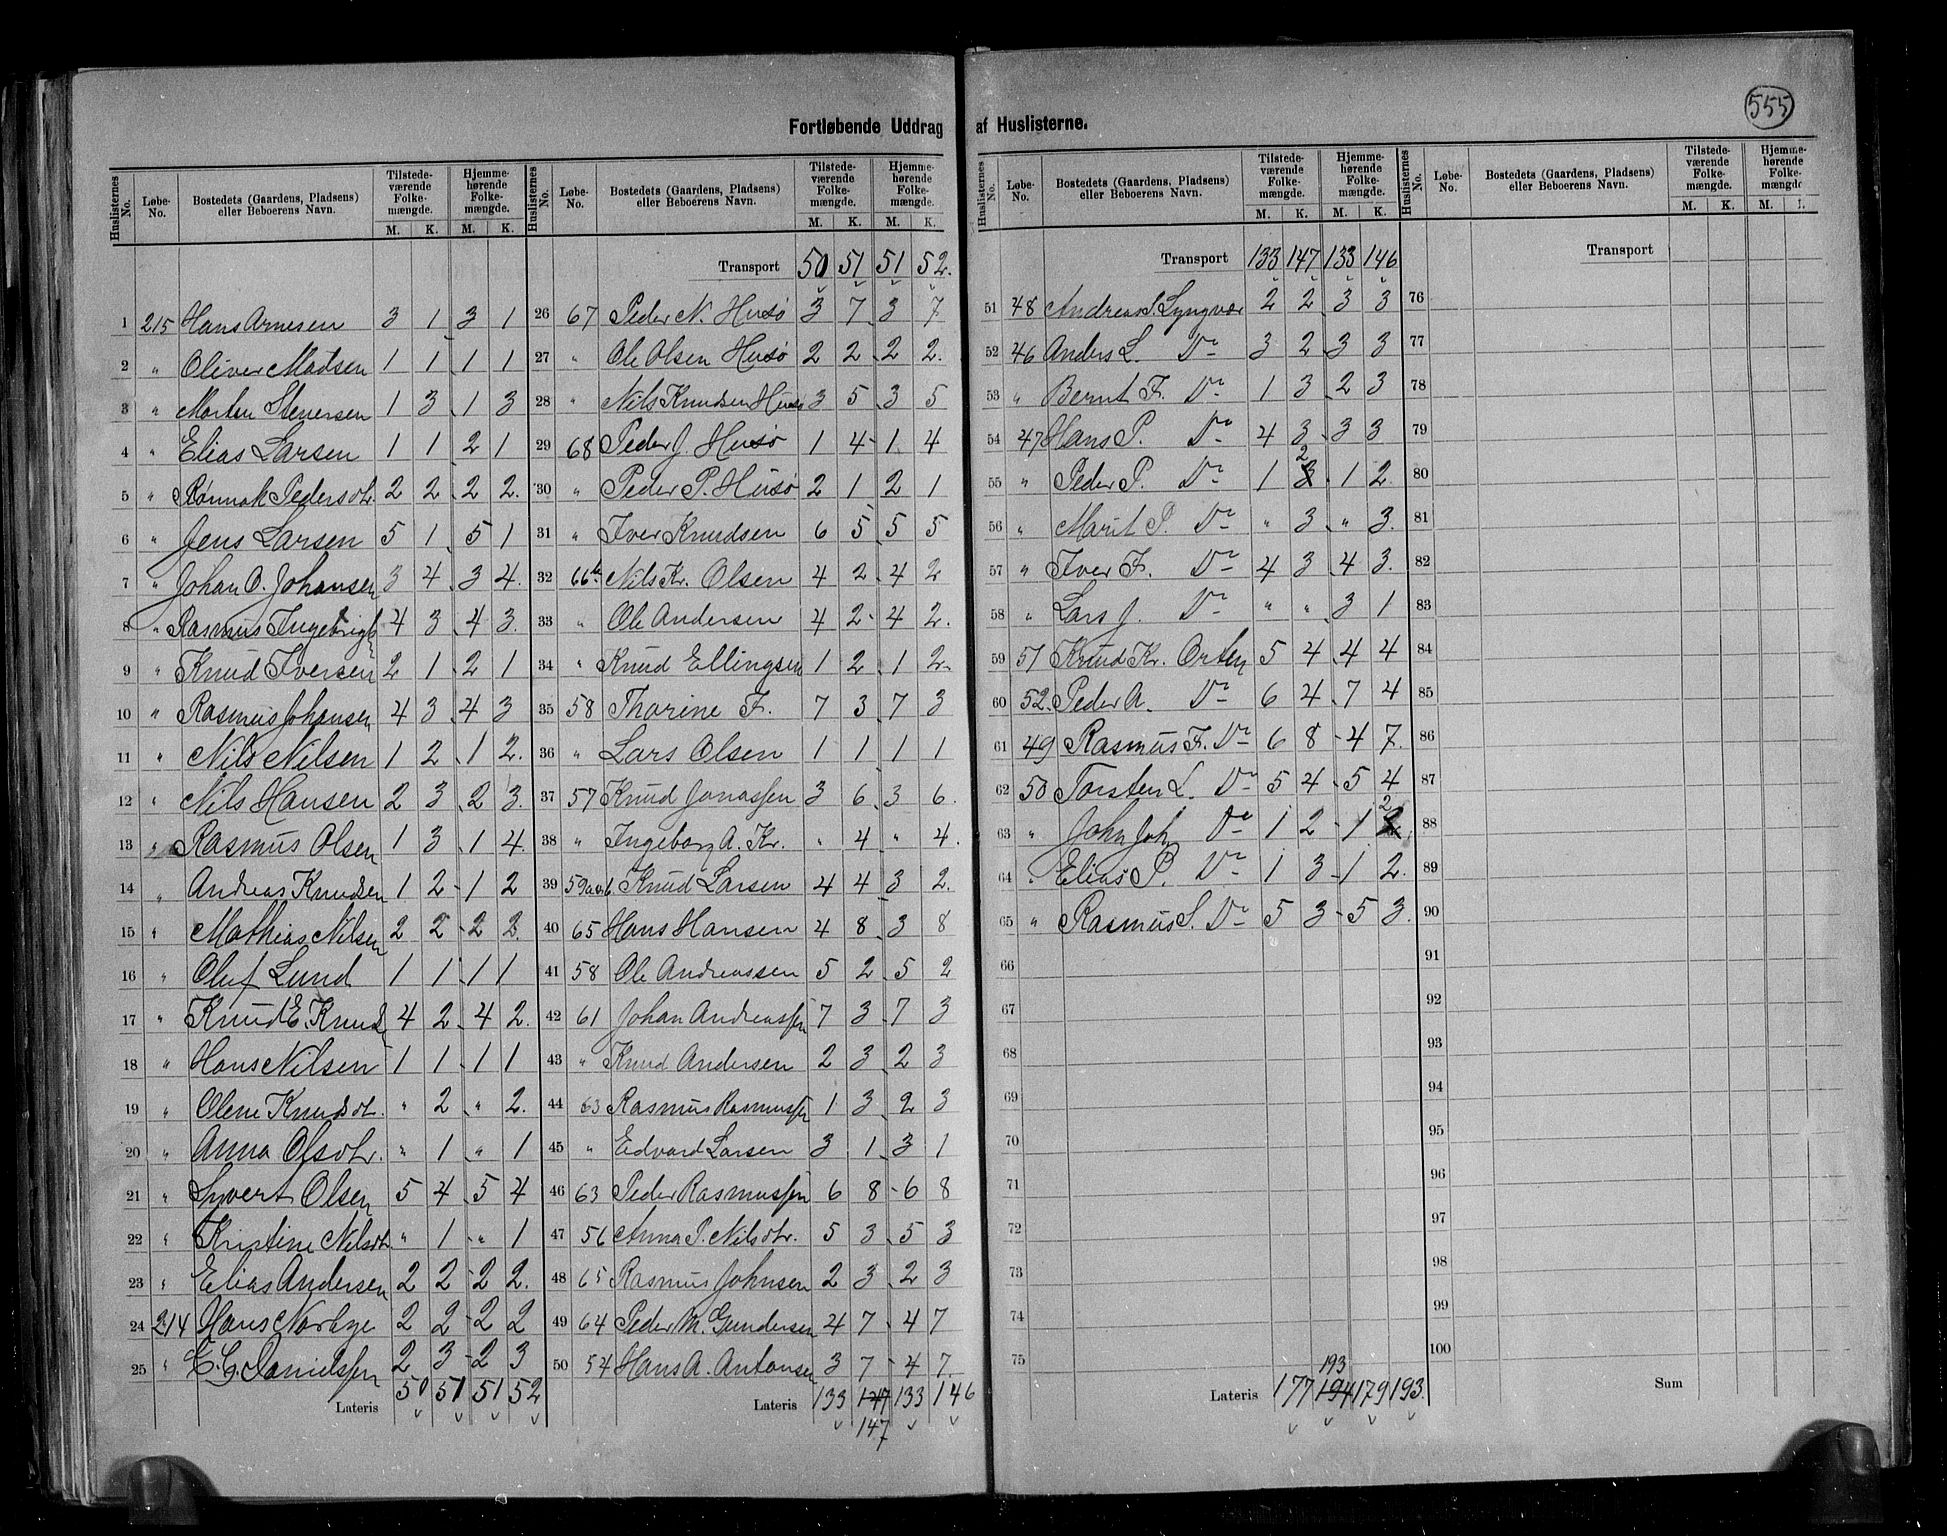 555
Fortløbende Uddrag af Huslisterne.
Huslisternes No. Løbe-No. Bostedets (Gaardens, Pladsens) eller Beboerens Navn. Tilstedeværende Folkemængde. M. K. Hjemmehørende Folkemængde. M. K.
1 215 Hans Arnesen 3 1 3 1
2 " Oliver Madsen 1 1 1 1
3 " Morten Steversen 1 3 1 3
4 " Elias Larsen 1 1 2 1
5 " Rønnok Pedersdtr. 2 2 2 2.
6 " Jens Larsen 5 1 5 1
7 " Johan O. Johansen 3 4 3 4.
8 " Rasmus Ingebrigts 4 3 4 3.
9 " Knud Iversen 2 1 2 1
10 " Rasmus Johansen 4 3 4 3
11 " Nils Nilsen 1 2 1 2.
12 " Nils Hansen 2 3 2 3.
13 " Rasmus Olsen 1 3 1 4.
14 " Andreas Knudsen 1 2 1 2
15 " Mathias Nilsen 2 2 2 2.
16 " Oluf Lund 1 1 1 1
17 " Knud E. Knuds 4 2 4 2.
18 " Hans Nilsen 1 1 1 1
19 " Olene Knudsdt. " 2 " 2.
20 " Anna Olsdtr. " 1 " 1
21 " Syvert Olsen 5 4 5 4
22 " Kristine Nilsdt. " 1 " 1
23 " Elias Andersen 2 2 2 2.
24 214 Hans Norbye 2 2 2 2
25 " E. G. Danielssen 2 3 2 3
Lateris 50 51 51 52
Huslisternes No. Løbe-No. Bostedets (Gaardens, Pladsens) eller Beboerens Navn. Tilstedeværende Folkemængde. M. K. Hjemmehørende Folkemængde. M. K.
Transport 50 51 51 52.
26 67 Peder N. Husø 3 7 3 7
27 " Ole Olsen Husø 2 2 2 2.
28 " Nils Knudsen Husø 3 5 3 5
29 68 Peder J. Husø 1 4 1 4
30 " Peder P. Husø 2 1 2 1
31 " Iver Knudsen 6 5 5 5
32 66b Nils Kr. Olsen 4 2 4 2
33 " Ole Andersen 4 2 4 2.
34 " Knud Ellingsen 1 2 1 2.
35 58 Thorine F. 7 3 7 3
36 " Lars Olsen 1 1 1 1
37 57 Knud Jonassen 3 6 3 6.
38 " Ingeborg A. Kr. " 4 " 4.
39 59 Knud Larsen 4 4 3 2.
40 65 Hans Hansen 4 8 3 8
41 58 Ole Andreassen 5 2 5 2
42 61 Johan Andreassen 7 3 7 3
43 " Knud Andersen 2 3 2 3
44 63 Rasmus Rasmussen 1 3 2 3
45 " Edvard Larsen 3 1 3 1
46 63 Peder Rasmussen 6 8 6 8
47 56 Anna P. Nilsdtr. 5 3 5 3
48 65 Rasmus Johnsen 2 3 2 3
49 64 Peder M. Gundersen 4 7 4 7
50 54 Hans A. Antonsen 3 7 4 7.
Lateris 133 147 133 146
147
Huslisternes No. Løbe-No. Bostedets (Gaardens, Pladsens) eller Beboerens Navn. Tilstedeværende Folkemængde. M. K. Hjemmehørende Folkemængde. M. K.
Transport 133 147 133 146
51 48 Andreas S. Lyngvær 2 2 3 3
52 46 Anders L. Do 3 2 3 3
53 " Bernt F. Do 1 3 2 3
54 47 Hans P. Do 4 3 3 3
55 " Peder P. Do 1 2 1 2.
56 " Marit P. Do " 3 " 3.
57 " Iver F. Do 4 3 4 3.
58 " Lars J. Do " " 3 1
59 51 Knud Kr. Orten 5 4 4 4
60 52. Peder A. Do 6 4 7 4
61 49 Rasmus F. Do 6 8 4 7.
62 50 Torsten L. Do 5 4 5 4
63 " John Joh Do 1 2 1 2
64 " Elias P. Do 1 3 1 2.
65 " Rasmus S. Do 5 3 5 3.
66
67
68
69
70
71
72
73
74
75
193
Lateris 177 194 179 193.
Huslisternes No. Løbe-No. Bostedets (Gaardens, Pladsens) eller Beboerens Navn. Tilstedeværende Folkemængde. M. K. Hjemmehørende Folkemængde. M.
Transport
76
77
78
79
80
81
82
83
84
85
86
87
88
89
90
91
92
93
94
95
96
97
98
99
100
Sum